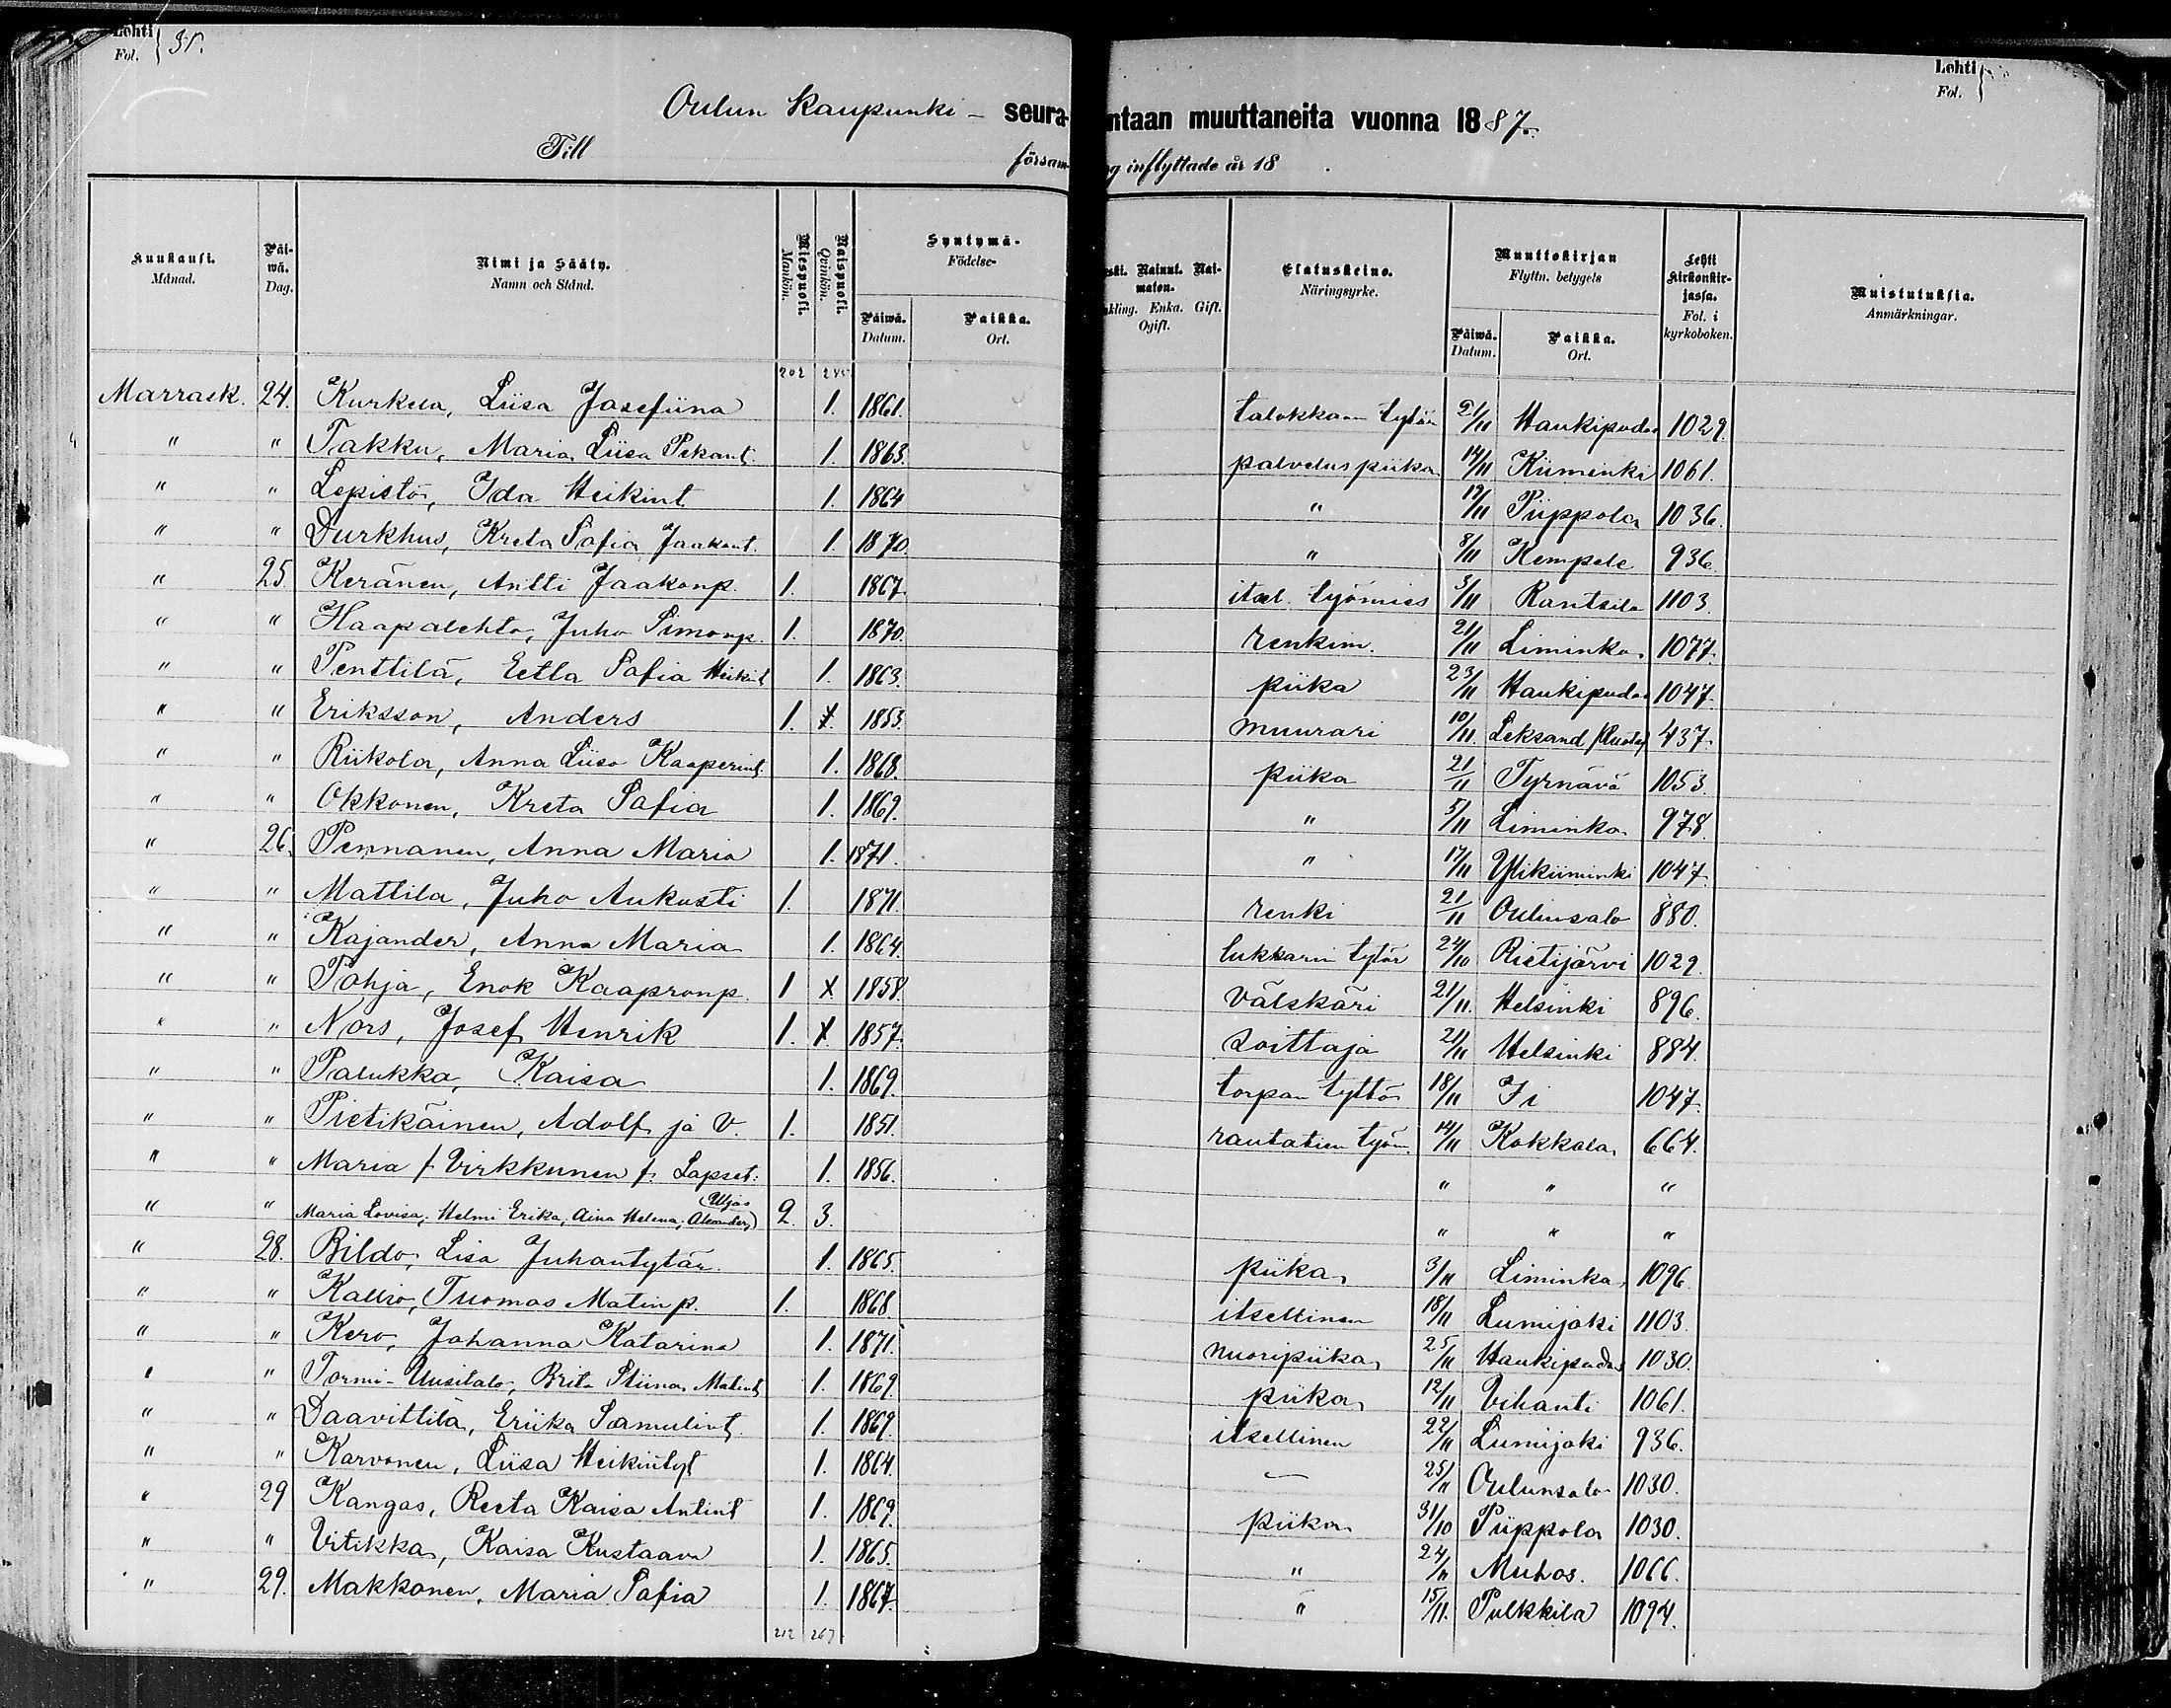 Lehti Fol. 31.
Lehti Fol.
Oulun Kaupunki - seura- ntaan muuttaneita vuonna 1887.
Till försam- g inflyttade år 18 .
Kuukausi. Månad. Päi-wä. Dag. Nimi ja Sääty. Namn och Stånd. Miespuoli. Mankön. Naispuoli. Qvinkön. Syntymä- Födelse- Päiwä. Datum. Paikka. Ort. eski. Nainut. Nai-maton. kling. Enka. Gift. Ogift. Elatuskeino. Näringsyrke. Muuttokirjan Flyttn. betygets Päiwä. Datum. Paikka. Ort. Lehti Kirkonkir-jassa. Fol. i kyrkoboken. Muistutuksia. Anmärkningar.
202 245
Marrask. 24. Kurkela, Liisa Josefiina 1. 1861. talokkaan tytär 21/11 Haukipudas 1029.
" " Takku, Maria Liisa Pekant. 1. 1863. palvelus piika 14/11 Kiiminki 1061.
" " Lepistö, Ida Heikint. 1. 1864 " 19/11 Piippola 1036.
" " Durkhus, Kreta Sofia Jaakont. 1. 1870. " 8/11 Kempele 936.
" 25. Keränen, Antti Jaakonp. 1. 1867. itsel. työmies 3/11 Rantsila 1103.
" " Haapalehto, Juho Simonp. 1. 1870. renkim. 21/11 Liminka 1077.
" " Penttilä, Eetla Sofia Heikint 1. 1863. piika 23/11 Haukipudas 1047.
" " Eriksson, Anders 1. 1853. muurari 10/11. Leksand 437.
" " Riikola, Anna Liisa Kaaperint. 1. 1868. piika 21/11 Tyrnävä 1053.
" " Okkonen, Kreta Sofia 1. 1869. " 5/11 Liminka 978.
" 26. Pennanen, Anna Maria 1. 1871. " 17/11 Ylikiiminki 1047.
" " Mattila, Juho Aukusti 1. 1871. renki 21/11 Oulunsalo 880.
" " Kajander, Anna Maria 1. 1864. lukkarin tytär 24/10 Pietijärvi 1029.
" " Pohja, Enok Kaapronp. 1 1858. välskäri 21/11. Helsinki 896.
" " Nors, Josef Henrik 1. 1857. soittaja 21/11 Helsinki 884.
" " Palukka, Kaisa 1. 1869. torpan tyttö 18/11 Ii 1047.
" " Pietikäinen, Adolf ja V. 1. 1851. rautatien työm. 14/11 Kokkola 664.
" " Maria f. Virkkunen f. Lapset: 1. 1856. " " "
" " Maria Lovisa, Helmi Erika, Aina Helena, Alexander, 2. 3. " " "
" 28. Bildo, Lisa Juhantytär. 1. 1865. piika 3/11 Liminka 1096.
" " Kallio, Tuomas Matinp. 1. 1868 itsellinen 18/11 Lumijoki 1103.
" " Kero, Johanna Katarina 1. 1871. nuoripiika 25/11 Haukipudas 1030.
" " Tormi-Uusitalo, Brita Stiina Matint 1. 1869. piika 12/11 Vihanti 1061.
" " Daavittila, Eriika Samulint. 1. 1869. itsellinen 22/11 Lumijoki 936.
" " Karvonen, Liisa Heikintyt 1. 1864. — 25/11 Oulunsalo 1030.
" 29 Kangas, Reeta Kaisa Antint 1. 1869. piika 31/10 Piippola 1030.
" " Vitikka, Kaisa Kustaava 1. 1865. " 24/11 Muhos. 1066.
" 29. Makkonen, Maria Sofia 1. 1867. " 15/11. Pulkkila 1094.
212 267